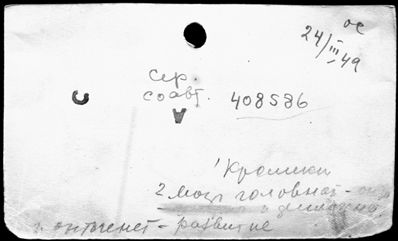 ос
24/III 49
сер.
соавт.
408586
С
А
Кролики
2 мозг головной -
онтогенез - развитие